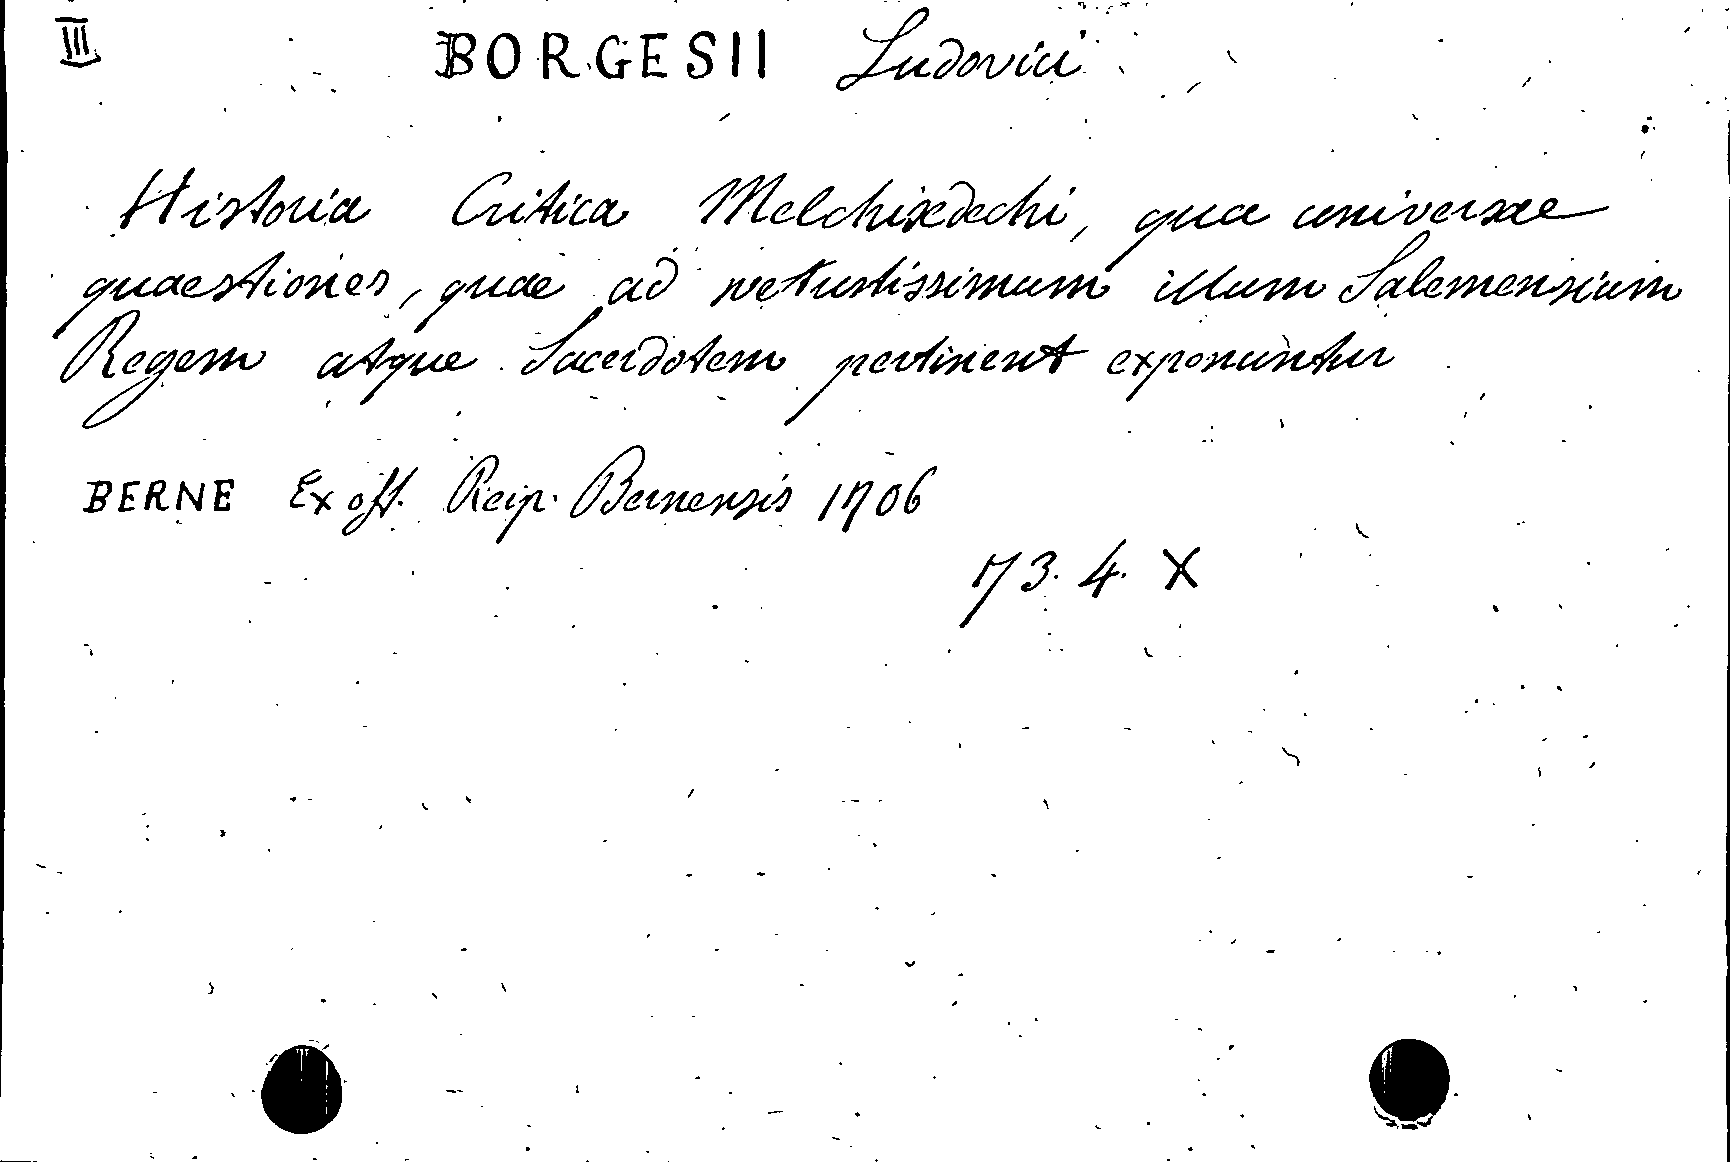 III BORGESII Ludovici
Historia Critica Melchisedechi, qua universae
quaestiones, quae ad vetustissimum illum Salemensium
Regem atque Sacerdotem pertinent exponuntur
BERNE Ex off. Reip. Bernensis 1706
73. 4. X